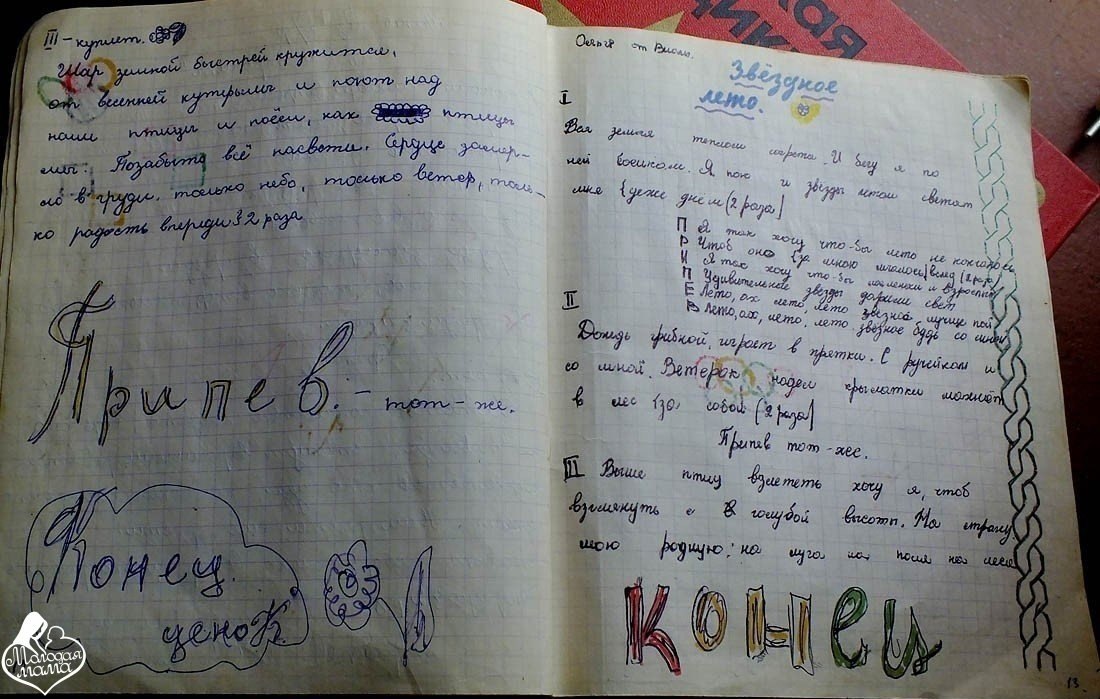 III - куплет.
Шар земной быстрей кружится,
от весенней кутерьмы и поют над
нами птицы и поём, как птицы
мы. Позабыто всё насвети. Сердце замер-
ло в груди. только небо, только ветер, толь-
ко радость впереди }2 раза
Припев. - тот-же.
Конец.
ценоК.
Молодая
мама
от Виолы.
Звёздное
лето.
I
Вся земля теплом согрета. И бегу я по
ней босиком. Я пою и звёзды летом светят
мне {даже днём (2 раза)
ПРИПЕВ
Я так хочу что-бы лето не кончалось
Чтоб оно {за мною мчалось} вслед (2 раза)
Я так хочу что-бы маленьки и взрослым
Удивительные звёзды дарили свет
Лето, ах лето, лето звёзной, лучше пой
Лето, ах, лето, лето звёзное будь со мной
II
Дождь грибной, играет в прятки. С ручейком и
со мной. Ветерок надел крылатки манит
в лес {за собой (2 раза)
Припев тот-жес.
III Выше птиц взлететь хочу я, чтоб
взглянуть с голубой высоты. На страну
мою родную: на луга на поля на леса
конец
13